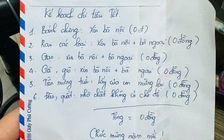 Kế hoạch chi tiêu Tết
1. Bánh chưng: Xin bà nội (0 đ)
2. Rau các loại: Xin bà nội + bà ngoại (0 đồng)
3. Gạo: xin bà nội + bà ngoại (0 đồng)
4. Gà, giò: xin bà nội + bà ngoại (0 đồng)
5. Tiền mừng tuổi: lấy của con mừng lại (0 đồng)
6. Đào, quất: nhà chật không có chỗ để (0 đồng)
Tổng = 0 đồng
(Chúc mừng năm mới)